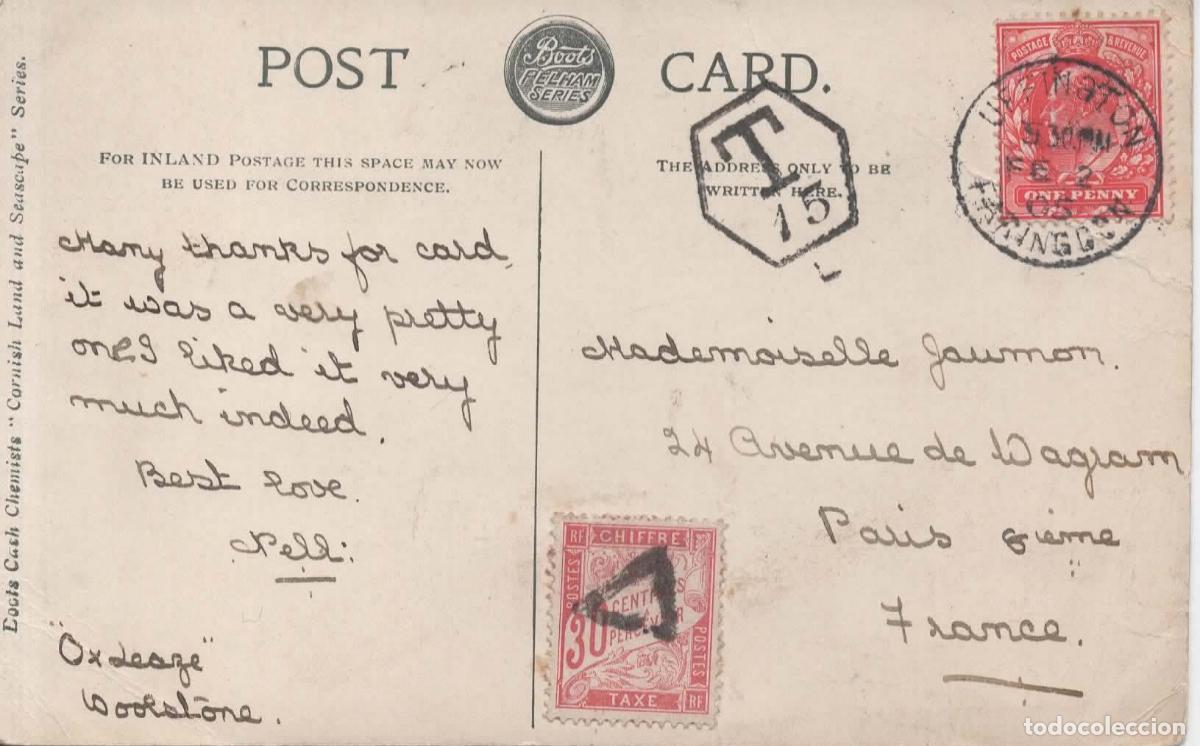 POST CARD.
Boots
PELHAM
SERIES
FOR INLAND POSTAGE THIS SPACE MAY NOW
BE USED FOR CORRESPONDENCE.
THE ADDRESS ONLY TO BE
WRITTEN HERE.
T
15
L
POSTAGE & REVENUE
ONE PENNY
UFFINGTON
FE 2
05
FARINGDON
Boots Cash Chemists "Cornish Land and Seascape" Series.
Many thanks for card,
it was a very pretty
one I liked it very
much indeed.
Best love.
Nell:
"Oxleaze"
Woolstone.
Mademoiselle Jaumon.
24 Avenue de Wagram
Paris
France.
RF CHIFFRE RF
POSTES
30
CENTIMES
A
PERCEVOIR
POSTES
RF TAXE RF
todocoleccion